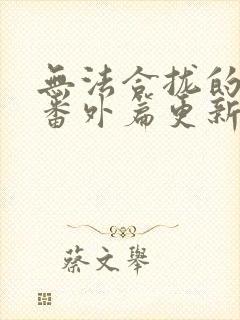 無法合拢的
番外篇更新
蔡文舉